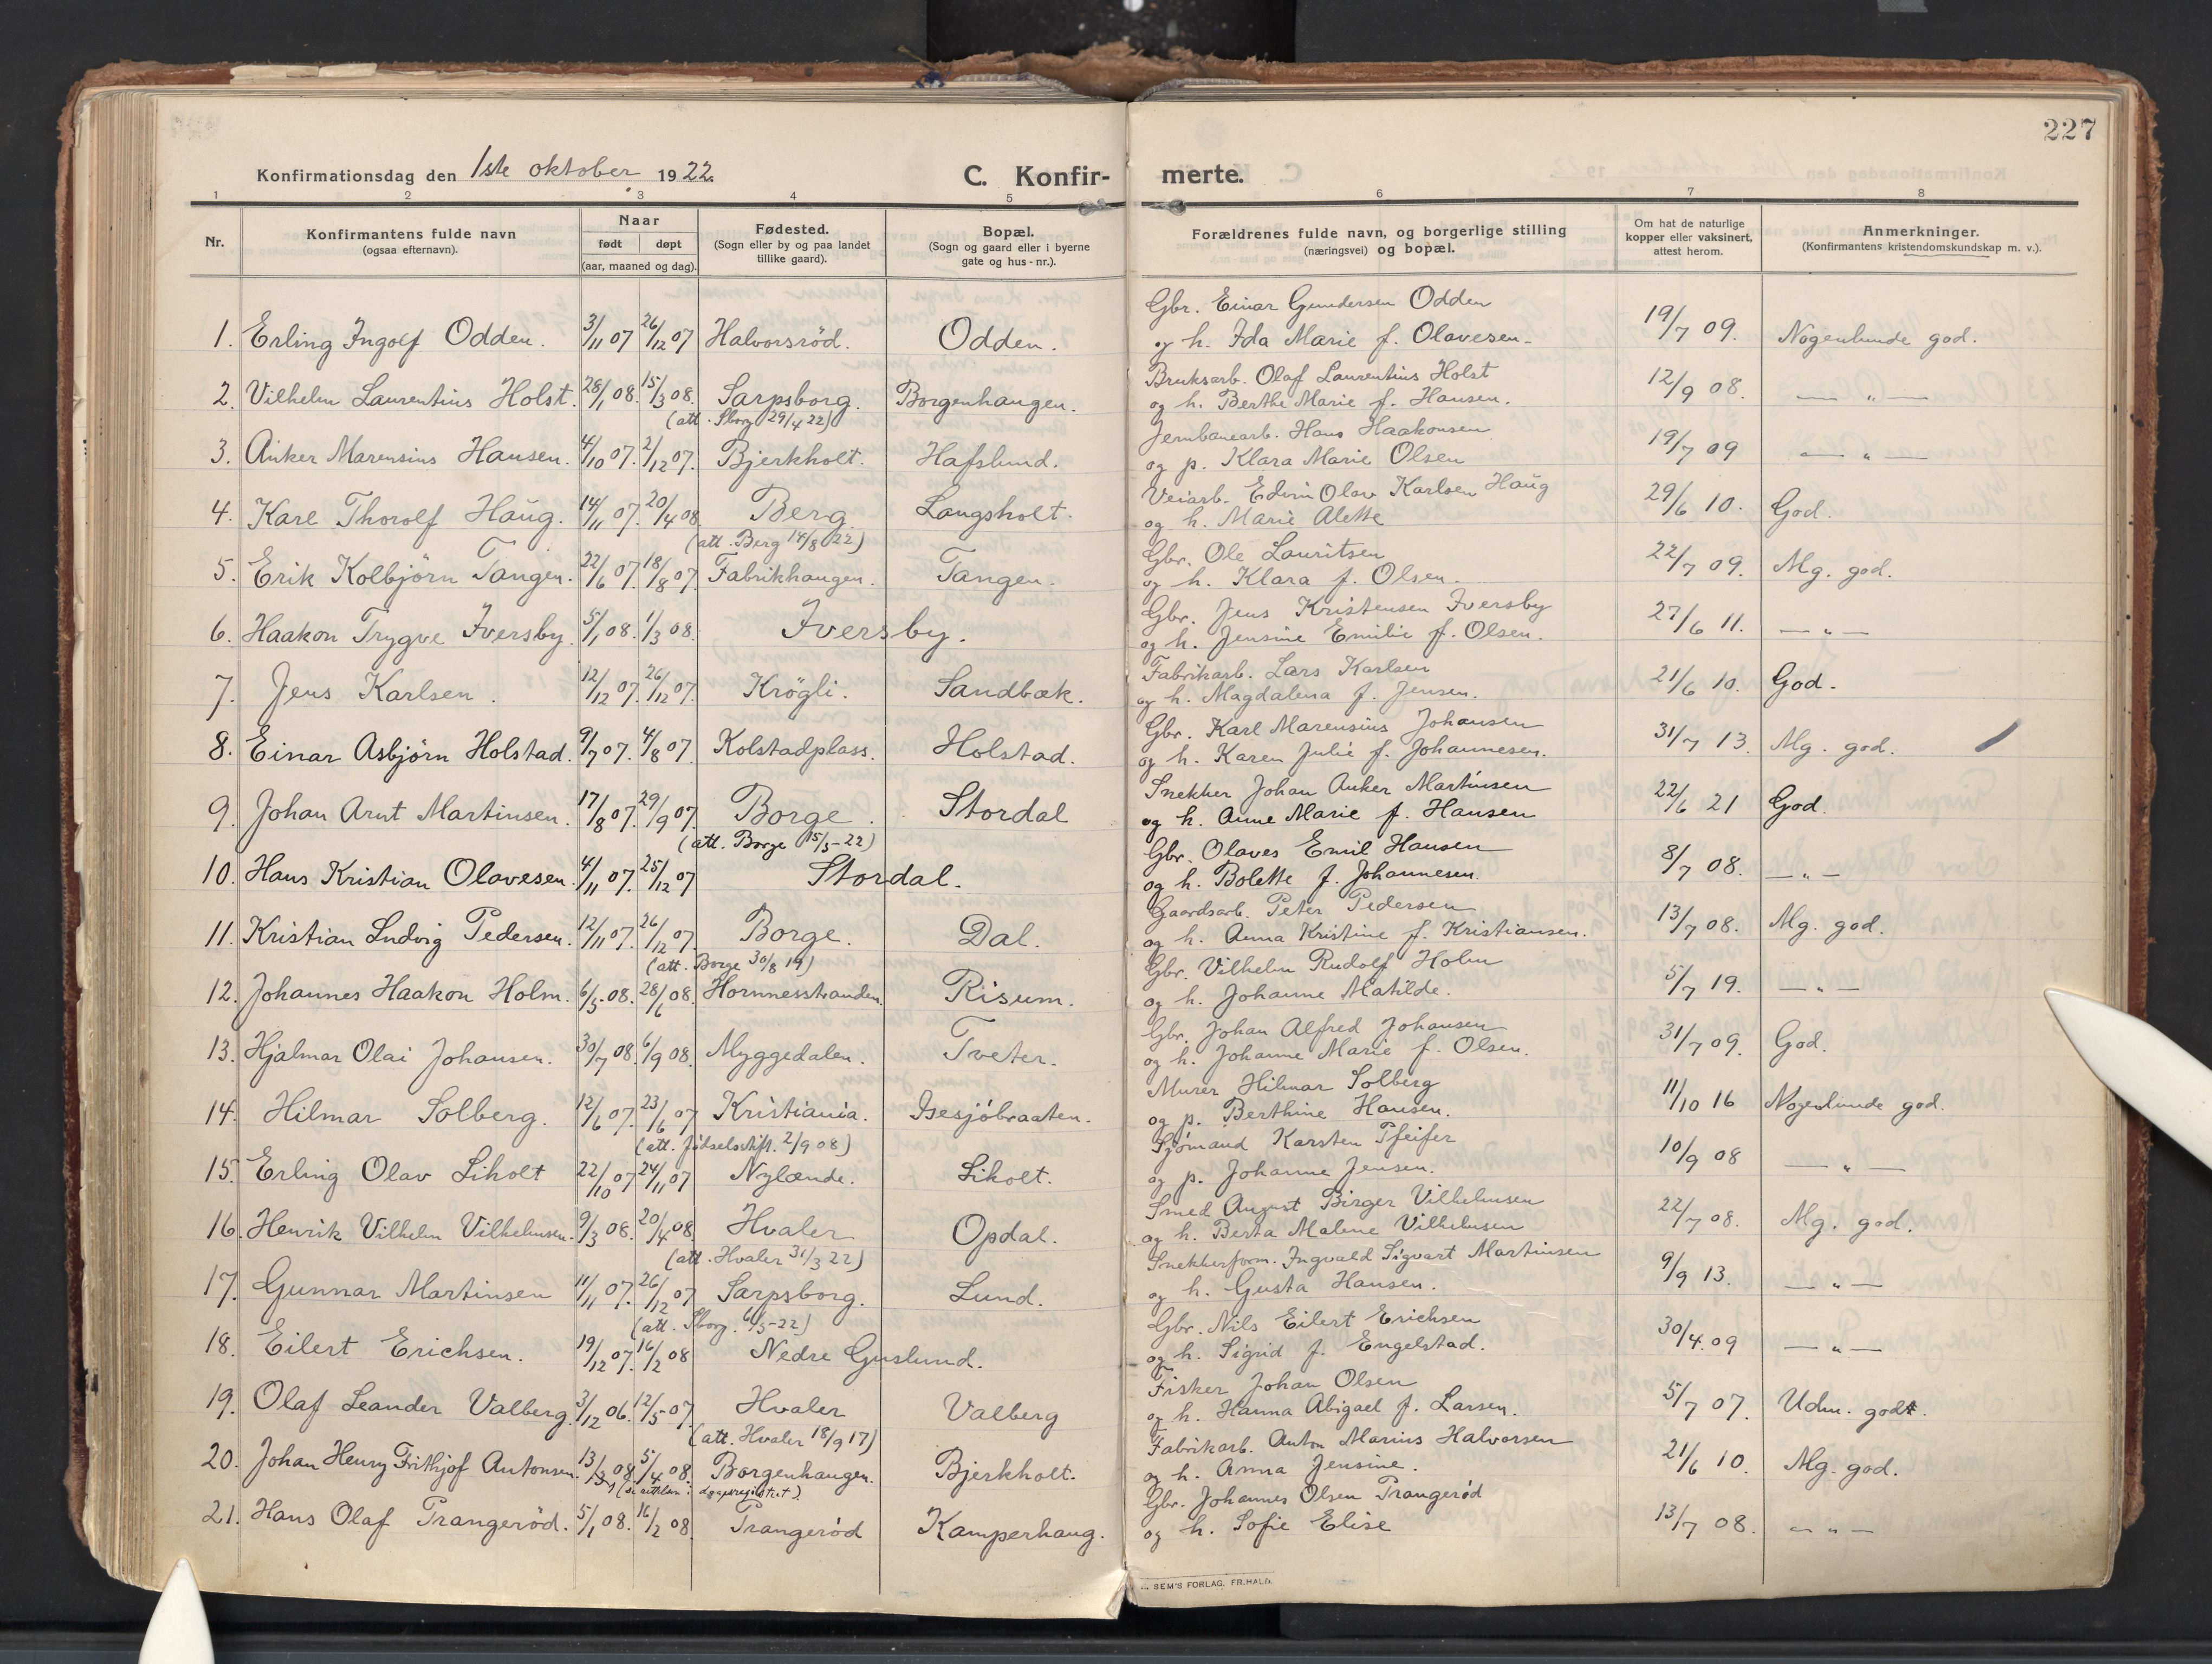 227
Konfirmationsdag den 1ste oktober 1922.
C. Konfir-
merte.
1 2 3 4 5 6 7 8
Nr.
Konfirmantens fulde navn
(ogsaa efternavn).
Naar
født døpt
(aar, maaned og dag).
Fødested.
(Sogn eller by og paa landet
tillike gaard).
Bopæl.
(Sogn og gaard eller i byerne
gate og hus-nr.).
Forældrenes fulde navn, og borgerlige stilling
(næringsvei) og bopæl.
Om hat de naturlige
kopper eller vaksinert,
attest herom.
Anmerkninger.
(Konfirmantens kristendomskundskap m. v.).
Gbr. Einar Gundersen Odden
1. Erling Ingolf Odden. 3/11 07 26/12 07 Halvorsröd. Odden. og h. Ida Marie f. Olavesen. 19/7 09. Nogenlunde god.
Bruksarb. Olaf Laurentius Holst
2. Vilhelm Laurentius Holst. 28/1 08. 15/3 08. Sarpsborg. Borgenhaugen. og h. Berthe Marie f. Hansen. 12/9 08. — " —
(att. Sborg 29/4 22)
Jernbanearb. Hans Haakonsen
3. Anker Marensius Hansen. 4/10 07. 2/12 07. Bjerkholt. Hafslund. og p. Klara Marie Olsen 19/7 09 — " —
Veiarb. Edvin Olav Karlsen Haug
4. Karl Thorolf Haug. 14/11 07. 20/4 08. Berg Langsholt. og h. Marie Alette 29/6 10. God.
(att. Berg 14/8 22)
Gbr. Ole Lauritsen
5. Erik Kolbjörn Tangen. 22/6 07. 18/8 07. Fabrikhaugen. Tangen. og h. Klara f. Olsen. 22/7 09. Mg. god.
Gbr. Jens Kristensen Iversby
6. Haakon Trygve Iversby. 5/1 08. 1/3 08. Iversby. og h. Jensine Emilie f. Olsen. 27/6 11. — " —
Fabrikarb. Lars Karlsen
7. Jens Karlsen. 12/12 07. 26/12 07. Krögli. Sandbæk. og h. Magdalena f. Jensen. 21/6 10. God.
Gbr. Karl Marensius Johansen
8. Einar Asbjörn Holstad. 9/7 07. 4/8 07 Kolstadplass. Holstad. og h. Karen Julie f. Johannesen. 31/7 13. Mg. god.
Snekker Johan Anker Martinsen
9. Johan Arnt Martinsen. 17/8 07. 29/9 07. Borge. Stordal og h. Anne Marie f. Hansen 22/6 21 God.
(att. Borge 15/5-22)
Gbr. Olaves Emil Hansen
10. Hans Kristian Olavesen. 4/11 07. 25/12 07 Stordal. og h. Bolette f. Johannesen. 8/7 08. — " —
Gaardsarb. Peter Pedersen
11. Kristian Ludvig Pedersen. 12/11 07. 26/12 07. Borge. Dal. og h. Anna Kristine f. Kristiansen. 13/7 08. Mg. god.
(att. Borge 30/8 19)
Gbr. Vilhelm Rudolf Holm
12. Johannes Haakon Holm. 6/5-08. 28/6 08. Hornnesstranden. Risum. og h. Johanne Matilde. 5/7 19. — " —
Gbr. Johan Alfred Johansen
13. Hjalmar Olai Johansen. 30/7 08. 6/9 08. Myggedalen. Tveter. og h. Johanne Marie f. Olsen. 31/7 09. God.
Murer Hilmar Solberg
14. Hilmar Solberg. 12/6 07. 23/6 07 Kristiania. Isesjöbraaten. og p. Berthine Hansen. 11/10 16 Nogenlunde god.
(att. Födselsstift. 2/9 08)
Sjømand Karsten Pfeifer
15. Erling Olav Liholt 22/10 07 24/11 07 Nylænde. Liholt. og p. Johanne Jensen. 10/9 08 — " —
Smed August Birger Vilhelmsen
16. Henrik Vilhelm Vilhelmsen. 9/3 08. 20/4 08. Hvaler Opdal. og h. Berta Malene Vilhelmsen 22/7 08. Mg. god.
(att. Hvaler 31/3 22)
Snekkerform. Ingvald Sigvart Martinsen
17. Gunnar Martinsen 11/11 07. 26/12 07 Sarpsborg. Lund. og h. Gusta Hansen. 9/9 13. — " —
(att. Sborg. 6/5-22)
Gbr. Nils Eilert Erichsen
18. Eilert Erichsen. 19/12 07. 16/2 08 Nedre Guslund. og h. Sigrid f. Engelstad. 30/4.09 — " —
Fisker Johan Olsen
19. Olaf Leander Valberg. 3/12 06. 12/5-07. Hvaler Valberg og h. Hanna Abigael f. Larsen. 5/7 07. Udm. godt.
(att. Hvaler 18/9 17)
Fabrikarb. Anton Marius Halvorsen
20. Johan Henry Frithjof Antonsen. 13/3 08. 5/4 08. Borgenhaugen. Bjerkholt. og h. Anna Jensine. 21/6 10. Mg. god.
Gbr. Johannes Olsen Trangeröd
21. Hans Olaf Trangeröd. 5/1 08. 16/2 08. Trangeröd Kamperhaug. og h. Sofie Elise 13/7 08. — " —
SEM'S FORLAG, FR.HALD.